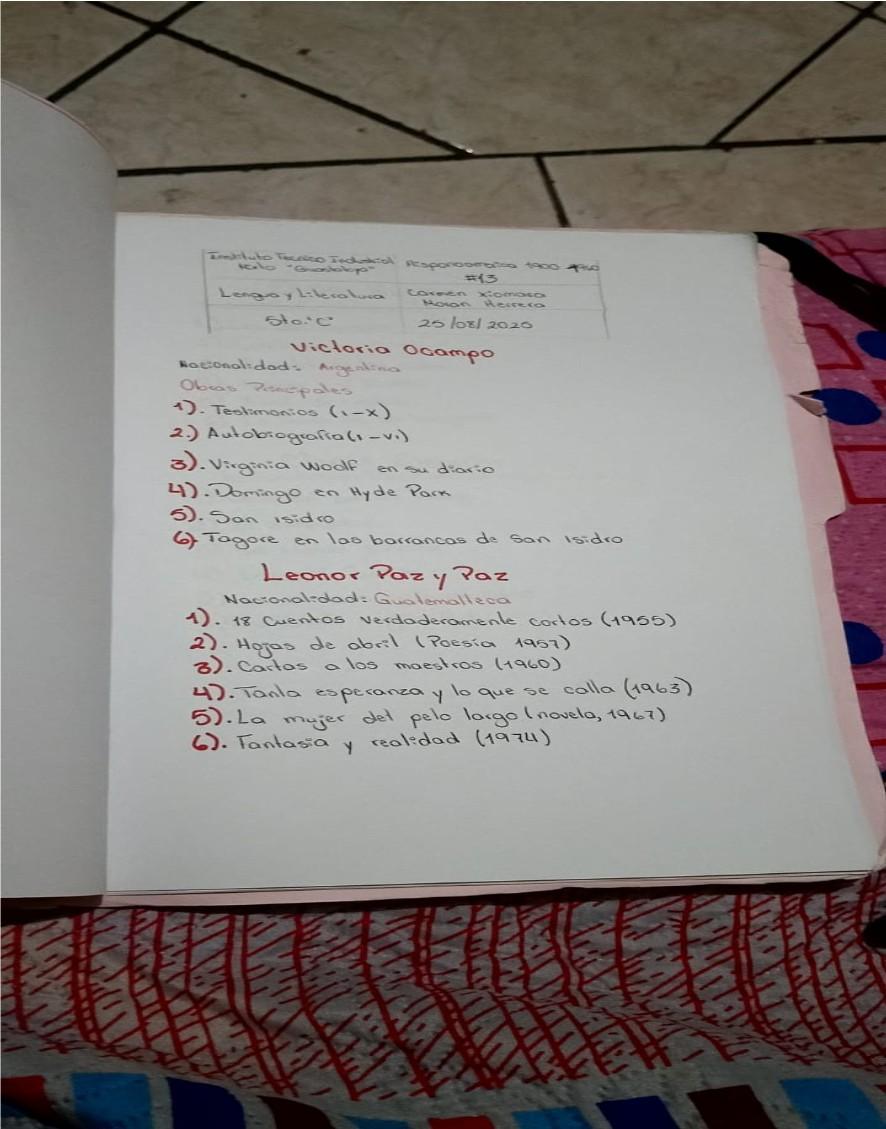 Instituto Tecnico Industrial
Hispanoamerica 1900
#13
Lengua y Literatura
Carmen Xiomara
Moran Herrera
5to. "C"
25/08/2020
Victoria Ocampo
Nacionalidad: Argentina
Obras Principales
1). Testimonios (1-X)
2.) Autobiografía (1-V1)
3). Virginia Woolf en su diario
4). Domingo en Hyde Park
5). San isidro
6) Tagore en las barrancas de San Isidro
Leonor Paz y Paz
Nacionalidad: Guatemalteca
1). 18 Cuentos verdaderamente cortos (1955)
2). Hojas de abril (Poesía 1957)
3). Cartas a los maestros (1960)
4). Tanta esperanza y lo que se calla (1963)
5). La mujer del pelo largo (novela, 1967)
6). Fantasía y realidad (1974)